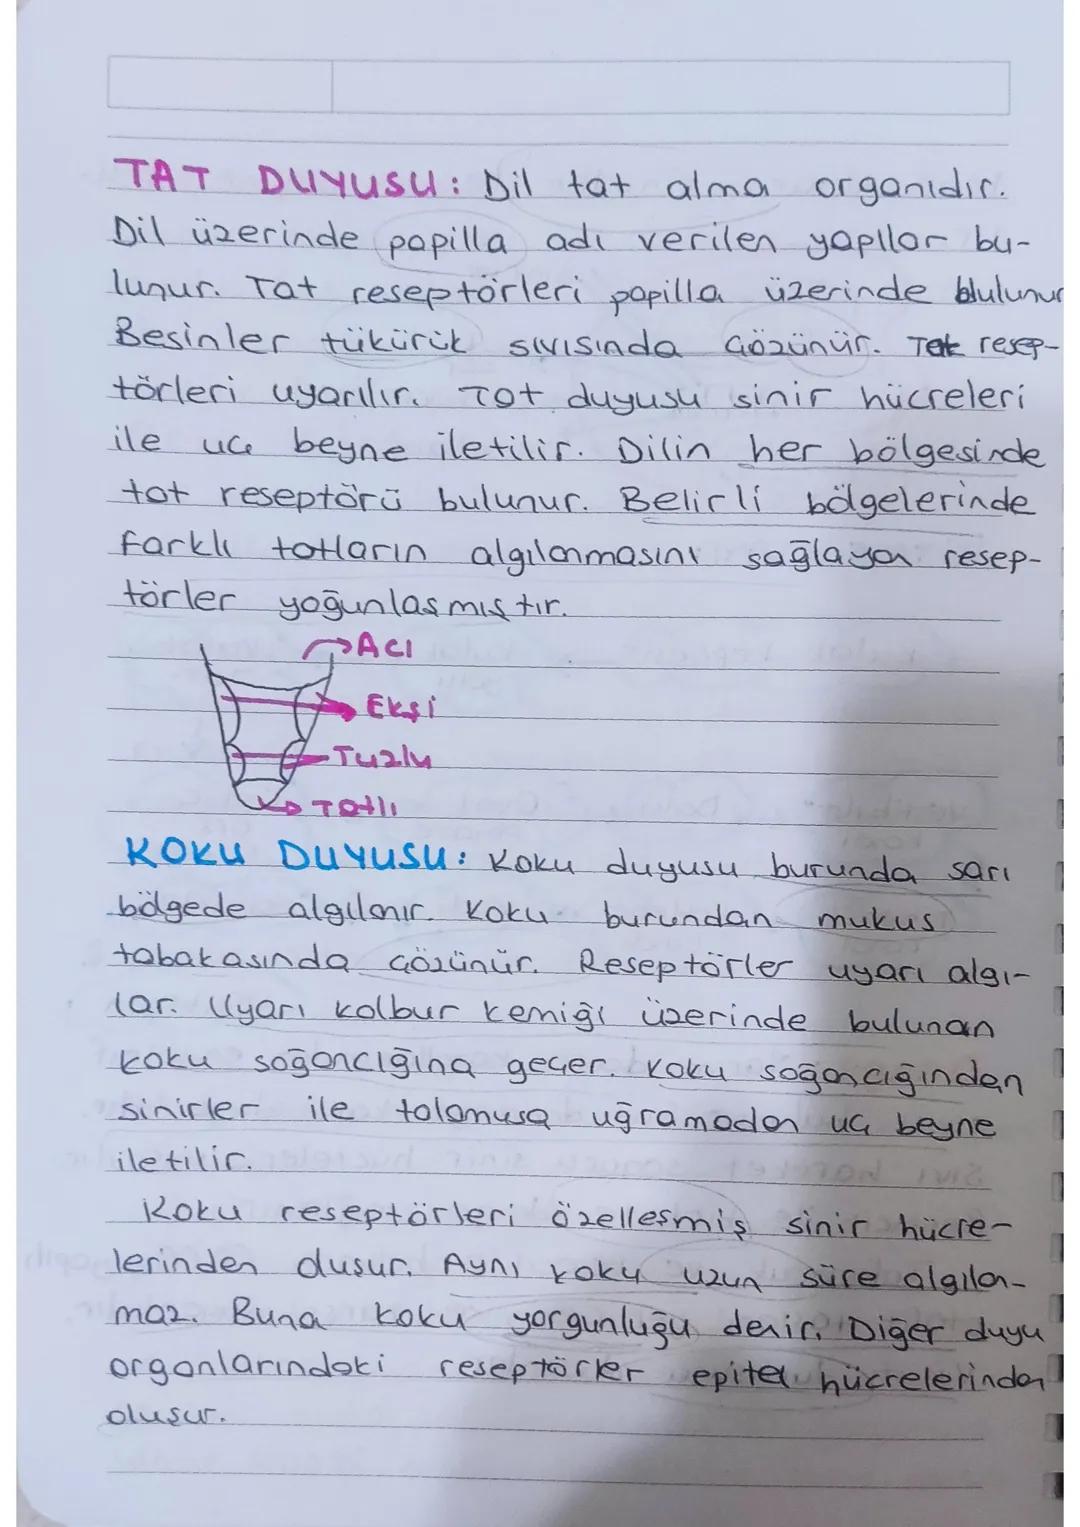 TAT DUYUSU: Dil tat alma organıdır.
Dil üzerinde papilla adı verilen yapılar bu-
lunur. Tat reseptörleri papilla üzerinde bulunur
Besinler tükürük sıvısında çözünür. Tat resep-
törleri uyarılır. Tat duyusu sinir hücreleri
ile uç beyne iletilir. Dilin her bölgesinde
tat reseptörü bulunur. Belirli bölgelerinde
farklı tatların algılanmasını sağlayan resep-
törler yoğunlaşmıştır.
Acı
Ekşi
Tuzlu
Tatlı
KOKU DUYUSU: Koku duyusu burunda sarı
bölgede algılanır. Koku burundan mukus
tabakasında çözünür. Reseptörler uyarı algı-
lar. Uyarı kalbur kemiği üzerinde bulunan
koku soğancığına geçer. Koku soğancığından
sinirler ile talamusa uğramadan uç beyne
iletilir.
Koku reseptörleri özelleşmiş sinir hücre-
lerinden olusur. Aynı koku uzun süre algılan-
maz. Buna koku yorgunluğu denir. Diğer duyu
organlarındaki reseptörler epitel hücrelerinden
oluşur.